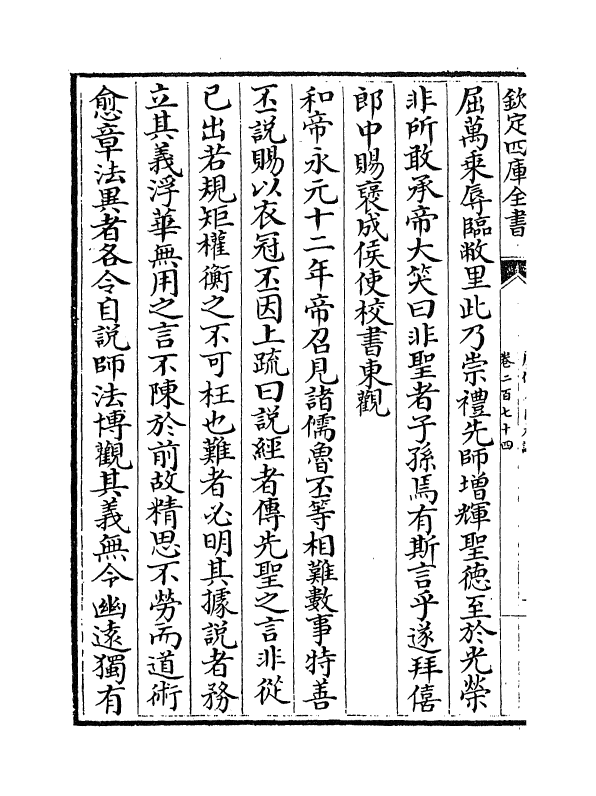 欽定四庫全書
卷二百七十四
屈萬乘辱臨敝里此乃崇禮先師增輝聖徳至於光榮
非所敢承帝大笑曰非聖者子孫焉有斯言乎遂拜僖
郎中賜襃成侯使校書東觀
和帝永元十二年帝召見諸儒魯丕等相難數事特善
丕説賜以衣冠丕因上疏曰説經者傳先聖之言非從
已出若規矩權衡之不可枉也難者必明其據説者務
立其義浮華無用之言不陳於前故精思不勞而道術
愈章法異者各令自説師法博觀其義無令幽遠獨有